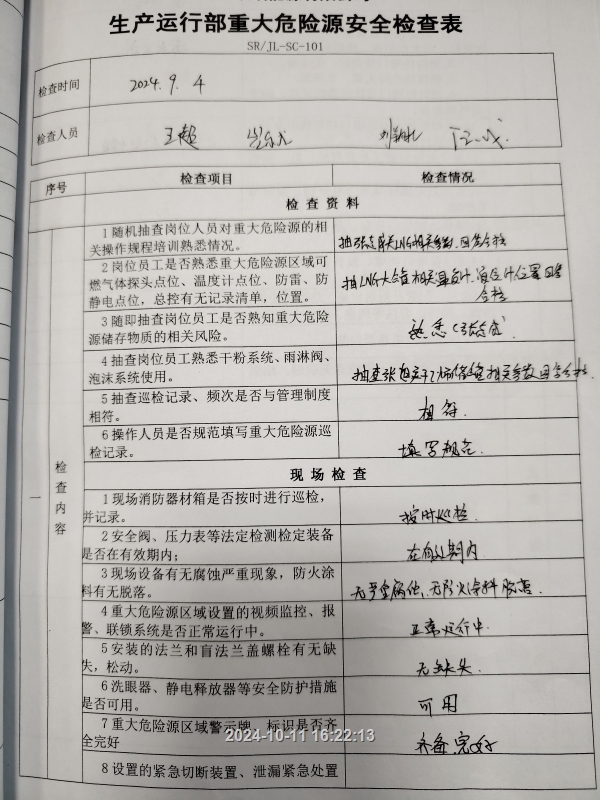 生产运行部重大危险源安全检查表
SR/JL-SC-101
检查时间
2024.9.4
检查人员
王超
序号
检查项目
检查情况
检查资料
1 随机抽查岗位人员对重大危险源的相
关操作规程培训熟悉情况。
回答合格
2 岗位员工是否熟悉重大危险源区域可
燃气体探头点位、温度计点位、防雷、防
静电点位，总控有无记录清单，位置。
合格
3 随即抽查岗位员工是否熟知重大危险
源储存物质的相关风险。
熟悉
4 抽查岗位员工熟悉干粉系统、雨淋阀、
泡沫系统使用。
回答合格
5 抽查巡检记录、频次是否与管理制度
相符。
相符
6 操作人员是否规范填写重大危险源巡
检记录。
填写规范
一
检查内容
现场检查
1 现场消防器材箱是否按时进行巡检，
并记录。
按时巡检.
2 安全阀、压力表等法定检测检定装备
是否在有效期内；
在有效期内
3 现场设备有无腐蚀严重现象，防火涂
料有无脱落。
无严重腐蚀、无防火涂料脱落.
4 重大危险源区域设置的视频监控、报
警、联锁系统是否正常运行中。
正常运行中.
5 安装的法兰和盲法兰盖螺栓有无缺
失，松动。
无缺失.
6 洗眼器、静电释放器等安全防护措施
是否可用。
可用
7 重大危险源区域警示牌、标识是否齐
全完好
齐备完好
2024-10-11 16:22:13
8 设置的紧急切断装置、泄漏紧急处置